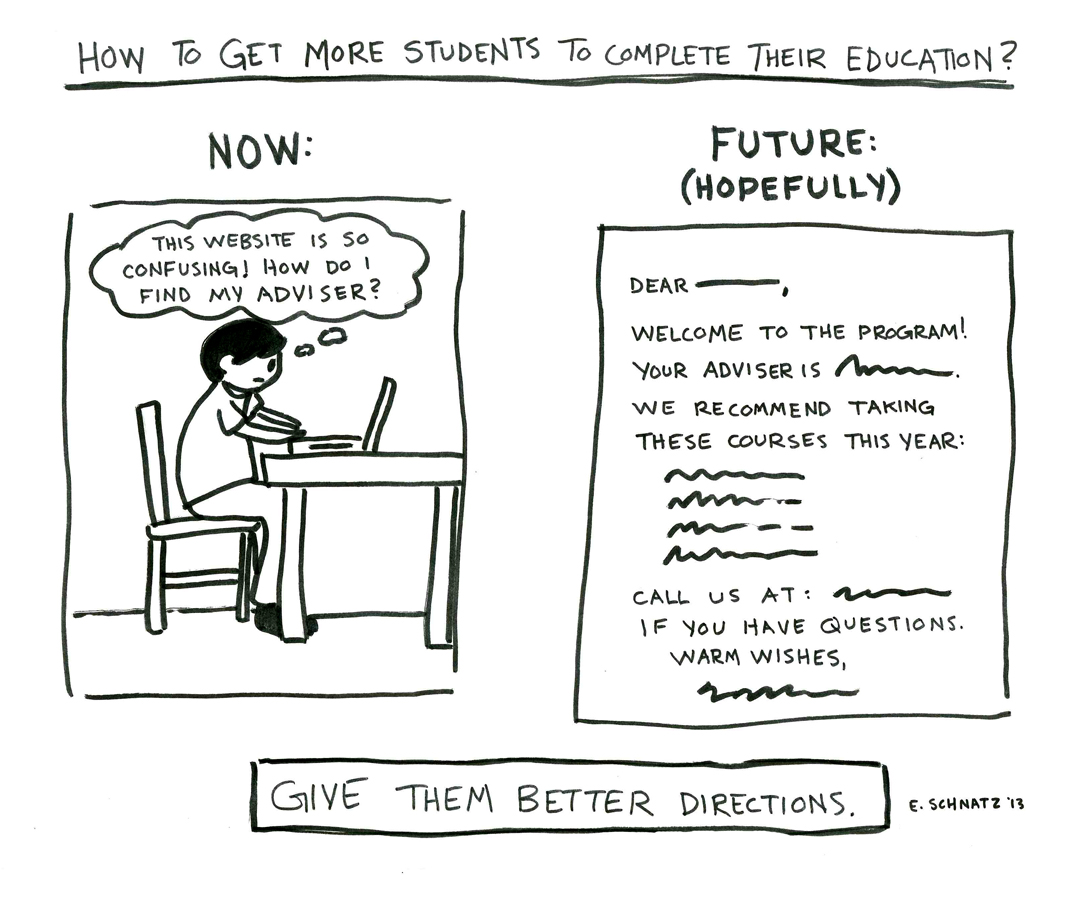 HOW TO GET MORE STUDENTS TO COMPLETE THEIR EDUCATION?
NOW:
THIS WEBSITE IS SO
CONFUSING! HOW DO I
FIND MY ADVISER?
FUTURE:
(HOPEFULLY)
DEAR ,
WELCOME TO THE PROGRAM!
YOUR ADVISER IS .
WE RECOMMEND TAKING
THESE COURSES THIS YEAR:
CALL US AT:
IF YOU HAVE QUESTIONS.
WARM WISHES,
GIVE THEM BETTER DIRECTIONS.
E. SCHNATZ '13